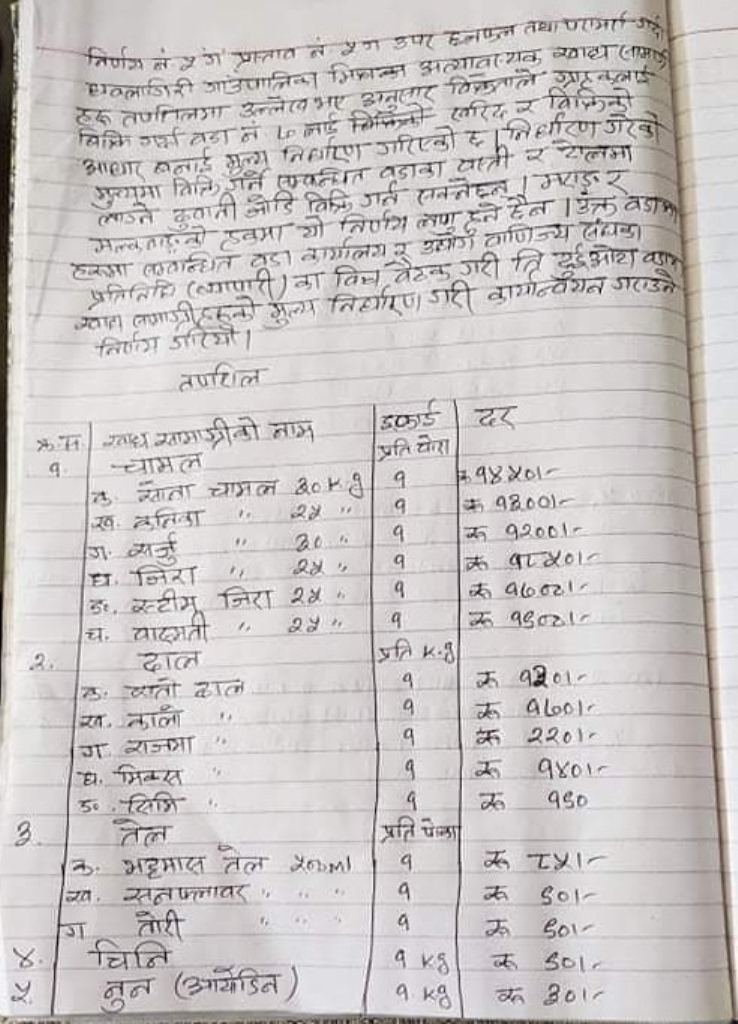 निर्णय नं ५ गः प्रस्ताव नं ५ ग उपर छलफल तथा परामर्श गर्दा
धवलागिरी गाउँपालिका भित्रका अत्यावश्यक खाद्य सामाग्री
हरू तपसिलमा उल्लेख भए अनुसार बिक्रेताले ग्राहकलाई
बिक्रि गर्ने वडा नं ७ लाई बिक्रिको खरिद र बिक्रिको
आधार बनाई मूल्य निर्धारण गरिएको छ । निर्धारण गरेको
मूल्यमा बिक्रि गर्ने सम्बन्धित वडाका बस्ती र टोलमा
लाग्ने ढुवानी जोडि बिक्रि गर्न सक्नेछन् । मराङ र
मल्कवाङको हकमा यो निर्णय लागु हुने छैन । उक्त वडाका
हकमा सम्बन्धित वडा कार्यालय र उद्योग वाणिज्य संघका
प्रतिनिधि (व्यापारी) का विच बैठक गरी ति दुईओटा वडामा
खाद्य सामाग्रीहरूको मूल्य निर्धारण गरी कार्यान्वयन गराउने
निर्णय गरियो ।
तपशिल
क्र.स. खाद्य सामाग्रीको नाम इकाई दर
१. चामल प्रति बोरा
क. सोना चामल ३० kg १ रू १४५०।-
ख. कनिका " २५ " १ रू १३००।-
ग. सर्जु " ३० " १ रू १२००।-
घ. जिरा " २५ " १ रू १८५०।-
ङ. स्टीम जिरा २५ " १ रू १७०२।-
च. बासमती " २५ " १ रू १९०२।-
२. दाल प्रति k.g
क. रातो दाल १ रू १३०।-
ख. कालो " १ रू १७०।-
ग. राजमा " १ रू २२०।-
घ. मिक्स " १ रू १४०।-
ङ. सिमि " १ रू १९०
३. तेल प्रति पोका
क. भट्टमास तेल ५००ml १ रू ८५।-
ख. सनफ्लावर " " " १ रू ९०।-
ग तोरी " " " १ रू ९०।-
४. चिनि १ kg रू ९०।-
५. नुन (आयोडिन) १ kg रू ३०।-